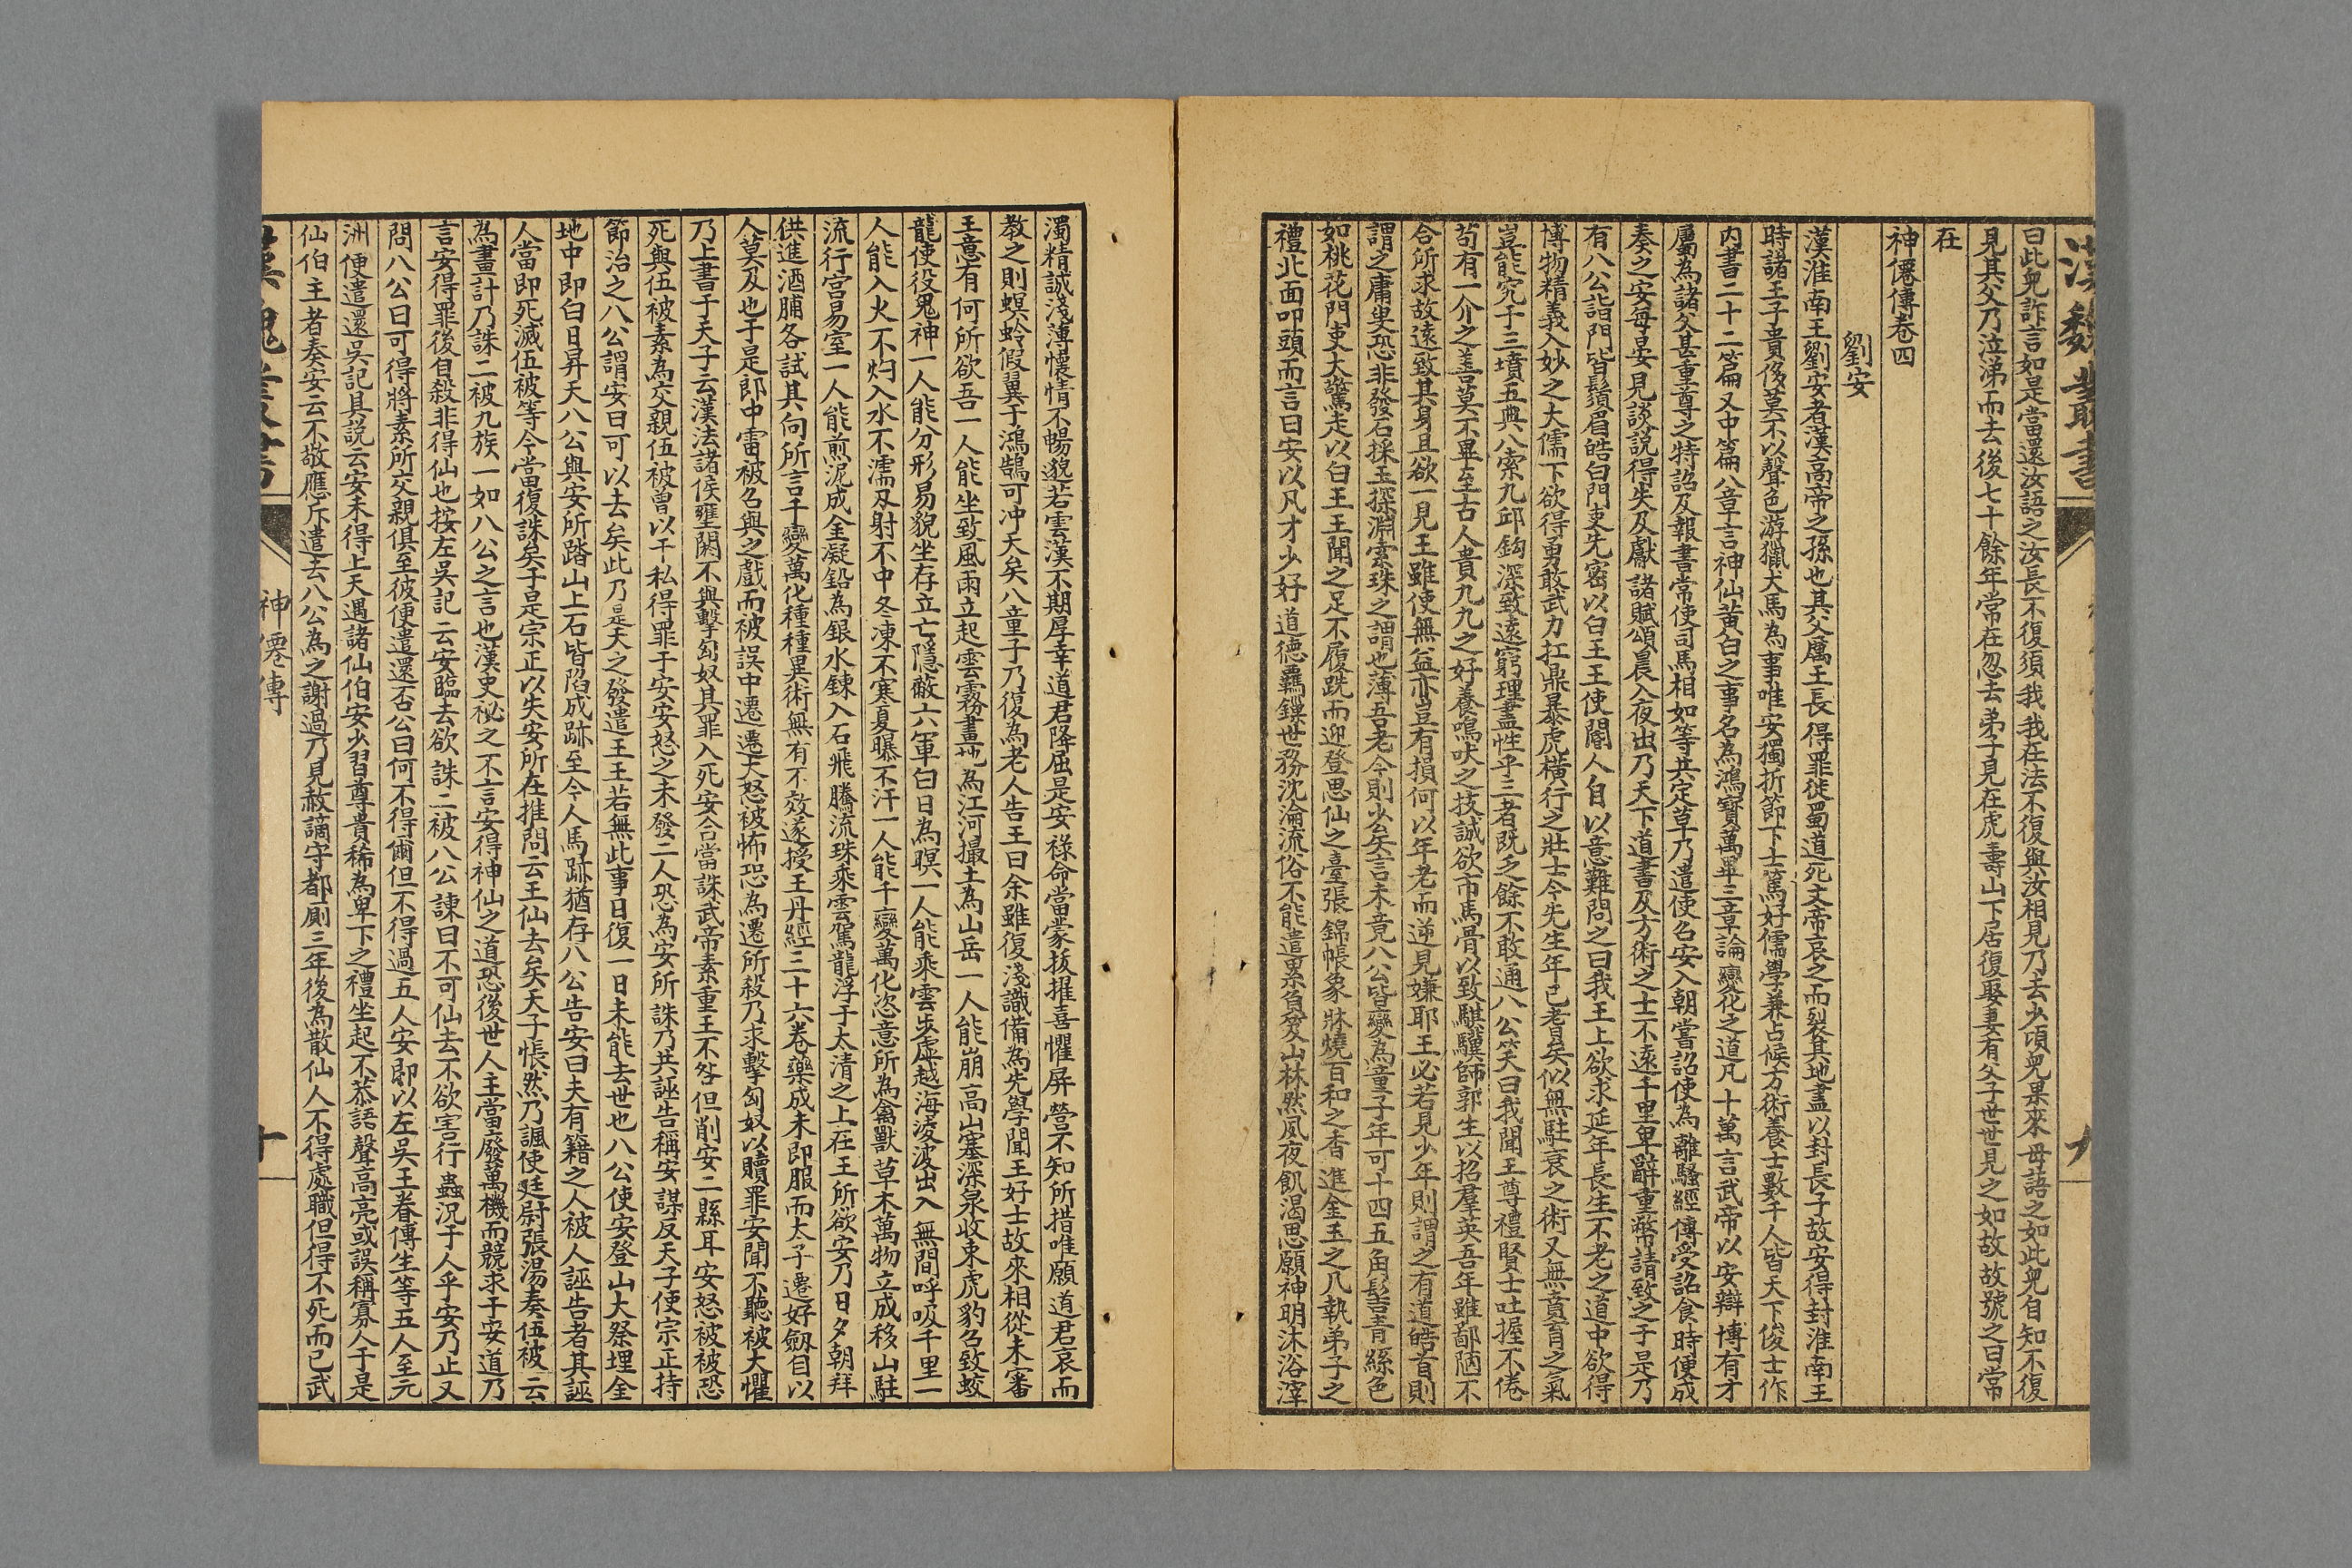 漢魏叢書
九
曰此兒詐言如是當還汝語之汝長不復須我我在法不復與汝相見乃去少頃兒果來母語之如此兒自知不復
見其父乃泣涕而去後七十餘年常在忽去弟子見在虎壽山下居復娶妻有父子世世見之如故故號之曰常
在
神僊傳卷四
劉安
漢淮南王劉安者漢高帝之孫也其父厲王長得罪徙蜀道死文帝哀之而裂其地盡以封長子故安得封淮南王
時諸王子貴侈莫不以聲色游獵犬馬為事唯安獨折節下士篤好儒學兼占候方術養士數千人皆天下俊士作
內書二十二篇又中篇八章言神仙黃白之事名為鴻寶萬畢三章論變化之道凡十萬言武帝以安辯博有才
屬為諸父甚重尊之特詔及報書常使司馬相如等共定草乃遣使召安入朝嘗詔使為離騷經傳受詔食時便成
奏之安每宴見談說得失及獻諸賦頌晨入夜出乃天下道書及方術之士不遠千里卑辭重幣請致之于是乃
有八公詣門皆鬚眉皓白門吏先密以白王王使閽人自以意難問之曰我王上欲求延年長生不老之道中欲得
博物精義入妙之大儒下欲得勇敢武力扛鼎暴虎橫行之壯士今先生年已耆矣似無駐衰之術又無賁育之氣
豈能究于三墳五典八索九邱鈎深致遠窮理盡性乎三者既乏餘不敢通八公笑曰我聞王尊禮賢士吐握不倦
苟有一介之善莫不畢至古人貴九九之好養鳴吠之技誠欲市馬骨以致騏驥師郭生以招羣英吾年雖鄙陋不
合所求故遠致其身且欲一見王雖使無益亦豈有損何以年老而逆見嫌耶王必若見少年則謂之有道皓首則
謂之庸叟恐非發石採玉探淵索珠之謂也薄吾老今則少矣言未竟八公皆變為童子年可十四五角髻青絲色
如桃花門吏大驚走以白王王聞之足不履跣而迎登思仙之臺張錦帳象牀燒百和之香進金玉之几執弟子之
禮北面叩頭而言曰安以凡才少好道德羈鏁世務沈淪流俗不能遣累負笈山林然夙夜飢渴思願神明沐浴滓
濁精誠淺薄懷情不暢邈若雲漢不期厚幸道君降屈是安祿命當蒙拔擢喜懼屏營不知所措唯願道君哀而
教之則螟蛉假翼于鴻鵠可冲天矣八童子乃復為老人告王曰余雖復淺識備為先學聞王好士故來相從未審
王意有何所欲吾一人能坐致風雨立起雲霧畫地為江河撮土為山岳一人能崩高山塞深泉收束虎豹召致蛟
龍使役鬼神一人能分形易貌坐存立亡隱蔽六軍白日為暝一人能乘雲步虛越海淩波出入無間呼吸千里一
人能入火不灼入水不濡刃射不中冬凍不寒夏曝不汗一人能千變萬化恣意所為禽獸草木萬物立成移山駐
流行宮易室一人能煎泥成金凝鉛為銀水鍊入石飛騰流珠乘雲駕龍浮于太清之上在王所欲安乃日夕朝拜
供進酒脯各試其向所言千變萬化種種異術無有不效遂授王丹經三十六卷藥成未即服而太子遷好劒自以
人莫及也于是郎中雷被召與之戲而被誤中遷遷大怒被怖恐為遷所殺乃求擊匈奴以贖罪安聞不聽被大懼
乃上書于天子云漢法諸侯壅閼不與擊匈奴其罪入死安合當誅武帝素重王不咎但削安二縣耳安怒被被恐
死與伍被素為交親伍被曾以干私得罪于安安怒之未發二人恐為安所誅乃共誣告稱安謀反天子使宗正持
節治之八公謂安曰可以去矣此乃是天之發遣王王若無此事日復一日未能去世也八公使安登山大祭埋金
地中即白日昇天八公與安所踏山上石皆陷成跡至今人馬跡猶存八公告安曰夫有籍之人被人誣告者其誣
人當即死滅伍被等今當復誅矣于是宗正以失安所在推問云王仙去矣天子悵然乃諷使廷尉張湯奏伍被云
為畫計乃誅二被九族一如八公之言也漢史秘之不言安得神仙之道恐後世人主當廢萬機而競求于安道乃
言安得罪後自殺非得仙也按左吳記云安臨去欲誅二被八公諫曰不可仙去不欲害行蟲況于人乎安乃止又
問八公曰可得將素所交親俱至彼便遣還否公曰何不得爾但不得過五人安即以左吳王眷傳生等五人至元
洲便遣還吳記具說云安未得上天遇諸仙伯安少習尊貴稀為卑下之禮坐起不恭語聲高亮或誤稱寡人于是
仙伯主者奏安云不敬應斥遣去八公為之謝過乃見赦謫守都廁三年後為散仙人不得處職但得不死而已武
漢魏叢書
神僊傳
十